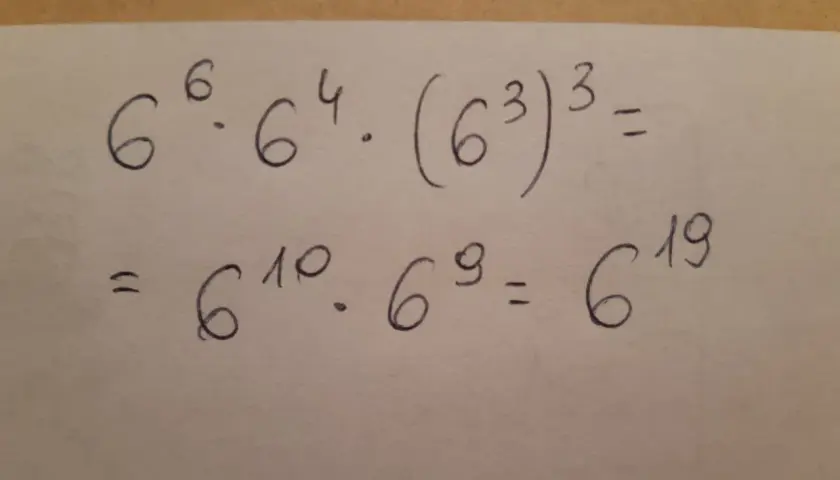 6⁶ · 6⁴ · (6³)³ =
= 6¹⁰ · 6⁹ = 6¹⁹